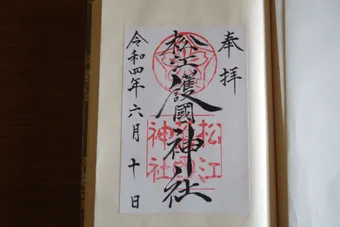 奉拝
松江護國神社
令和四年六月十日
松江
神社